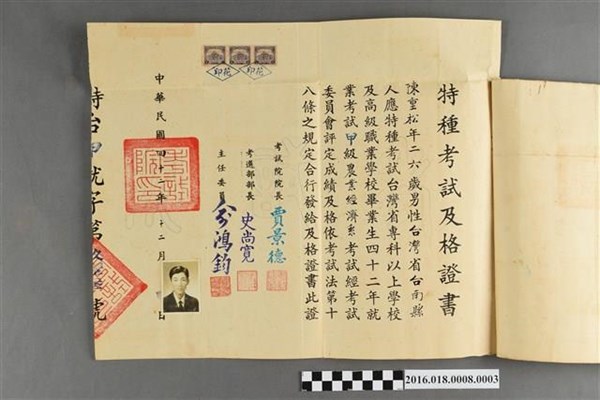 特種考試及格證書
陳重松年二六歲男性台灣省台南縣
人應特種考試台灣省專科以上學校
及高級職業學校畢業生四十二年就
業考試甲級農業經濟系考試經考試
委員會評定成績及格依考試法第十
八條之規定合行發給及格證書此證
考試院院長 賈景德
考選部部長 史尚寬
主任委員 鴻鈞
中華民國四十二年十二月 日
特台甲就字第 號
印花 印花
2016.018.0008.0003